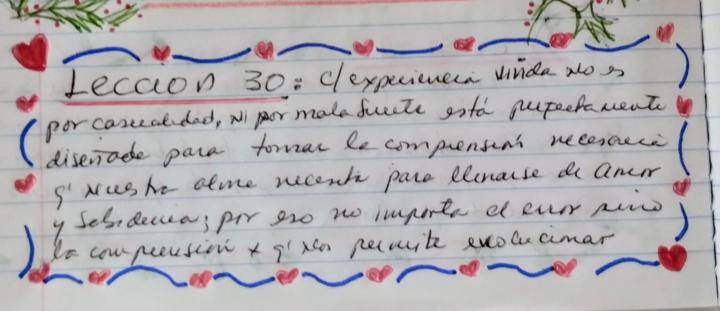 Leccion 30: c/experiencia vivida no es
por casualidad, ni por mala suerte está perfectamente
diseñada para tomar la comprensión necesaria
q' nuestra alma necesita para llenarse de amor
y sabiduria; por eso no importa el error sino
la comprensión x q' nos permite evolucionar